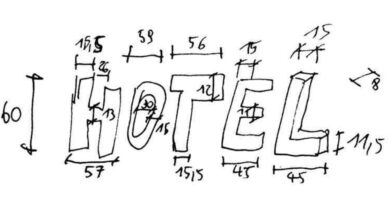 15,5 59 56 15 15
26
60 HOTEL 8
13 30 12 11
16 11,5
57 15,5 43 45